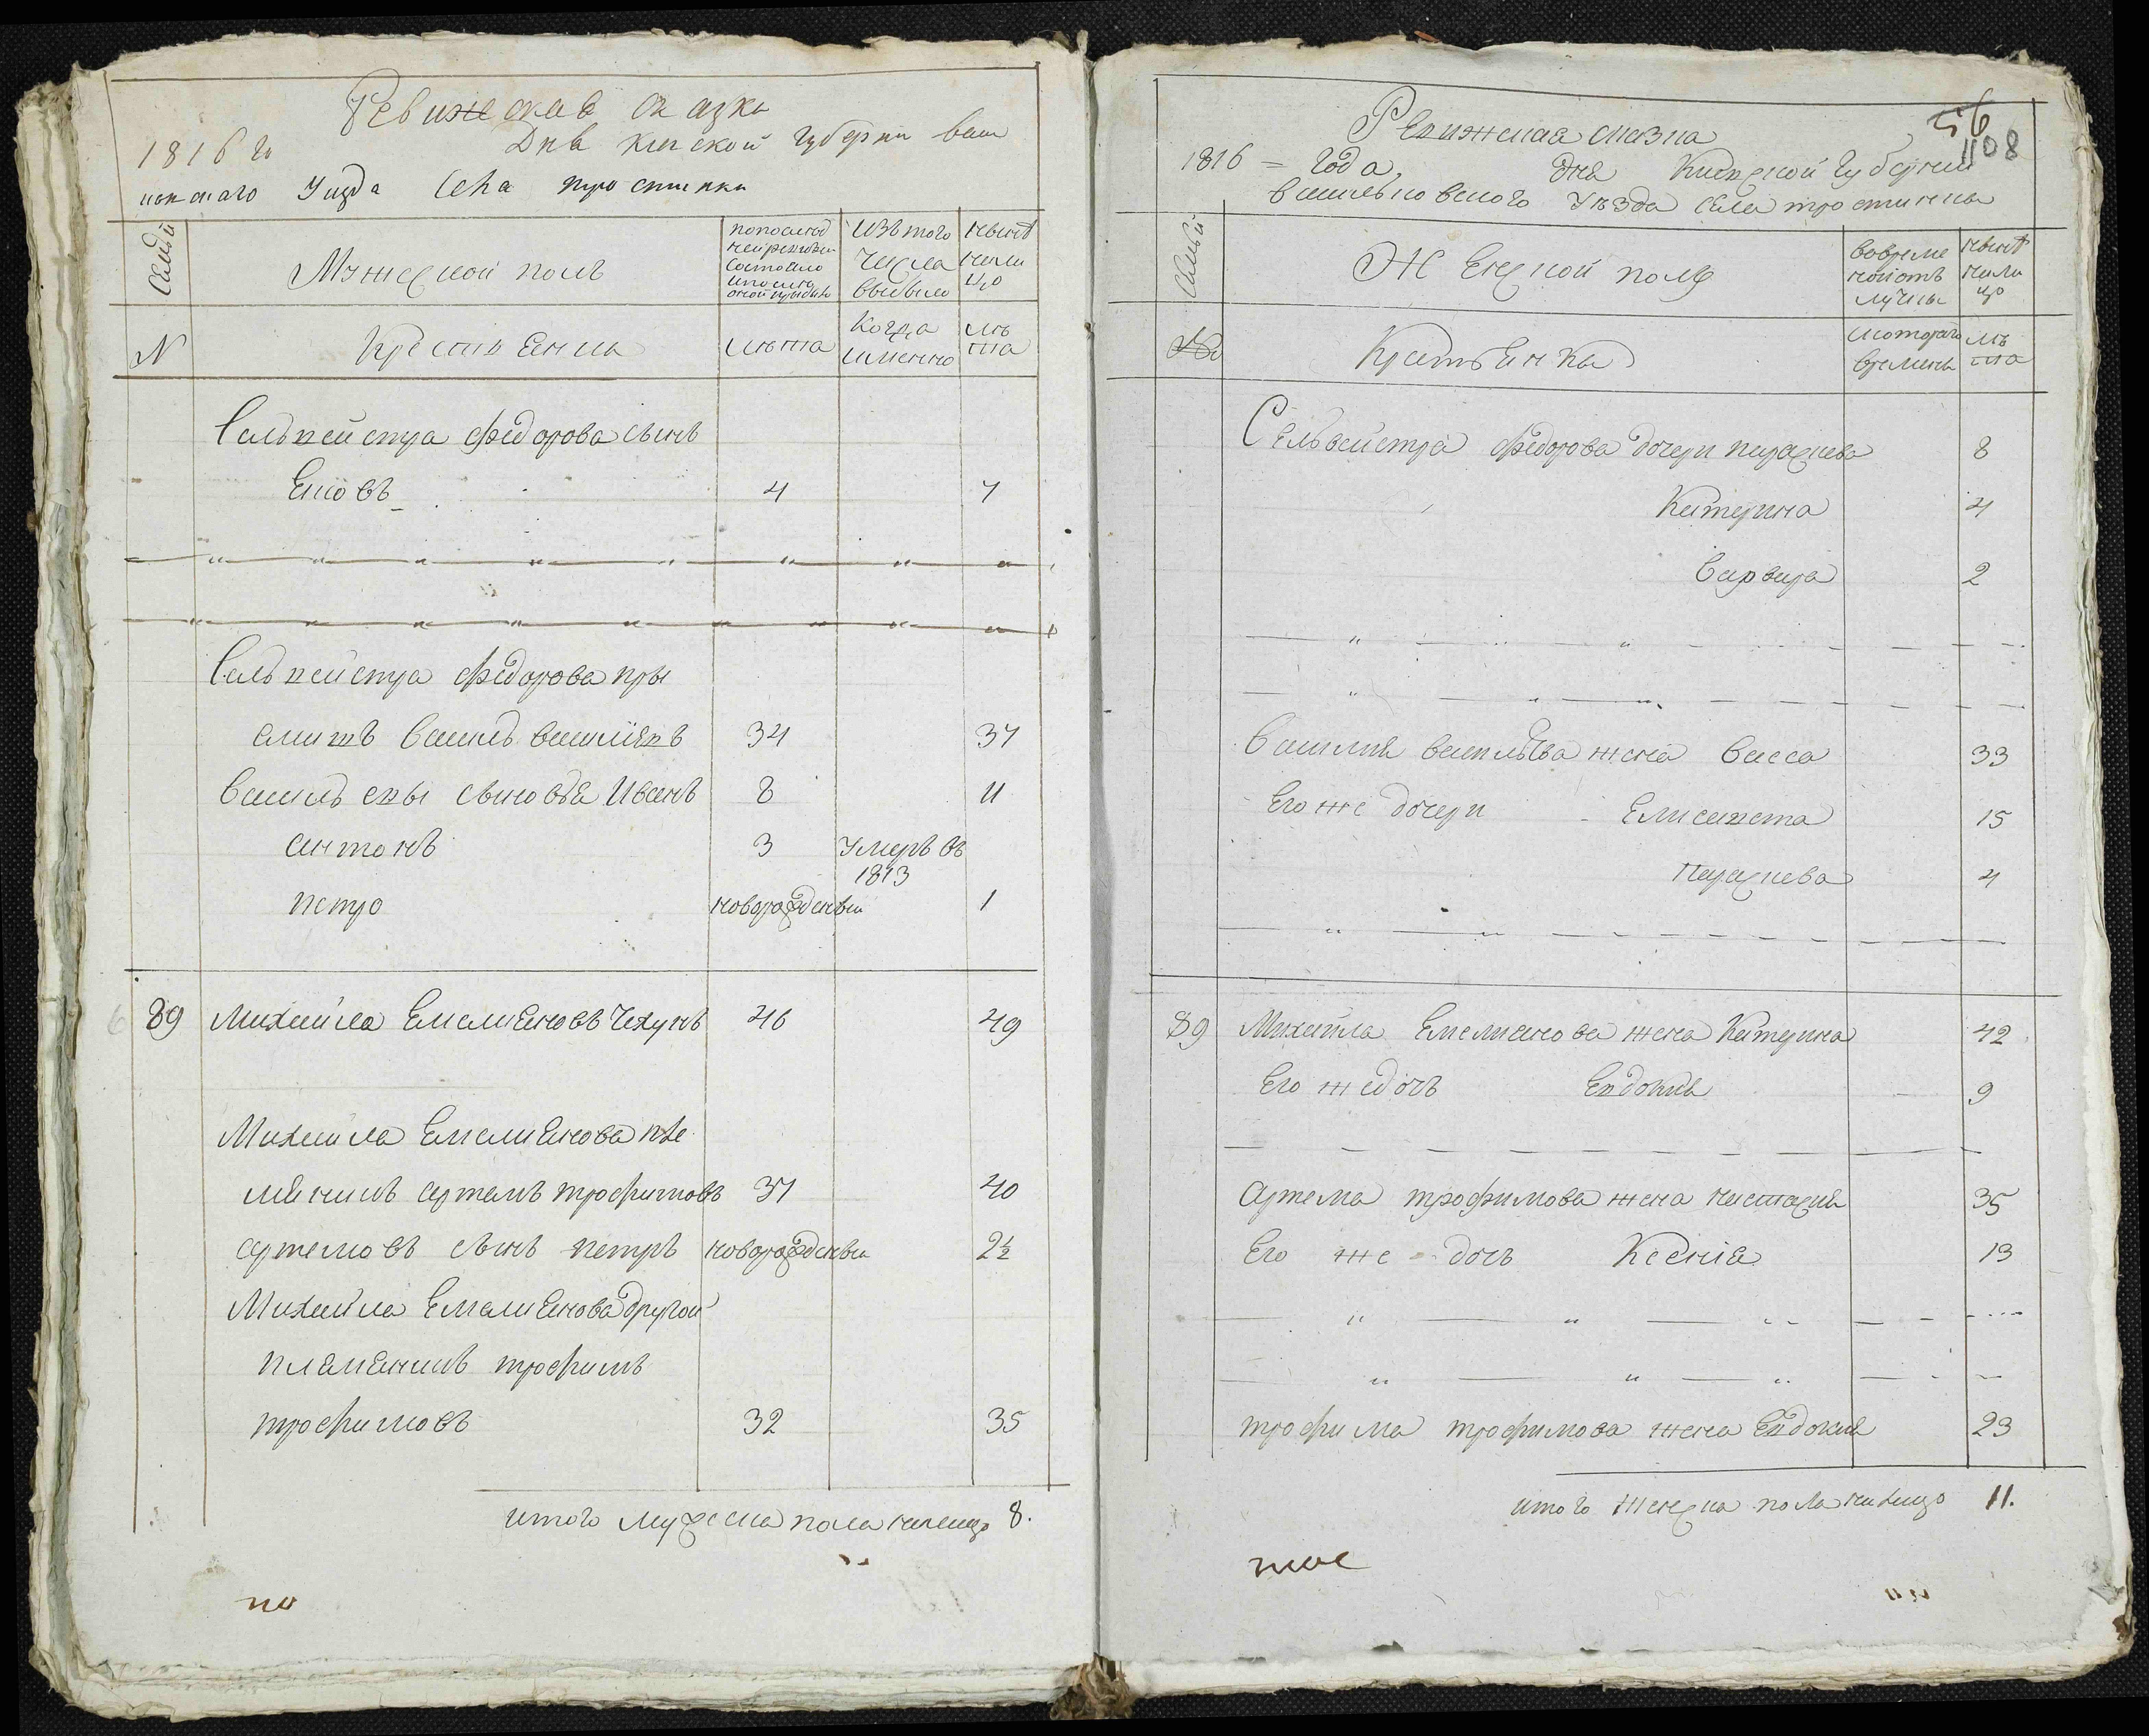 Ревижскае сказка
1816 го Дня Киевской губерни васи
лковскаго Уизда Села Тростинки
Семьи
Мужеской полъ
пополсед
ней ревизыи
состояло
и после
оной прибыло
Изътого
числа
выбыло
Нынѣ
нали
цо
N
Крестьяне
лѣта
Когда
именно
лѣ
та
Сельвейстра Федорова сынъ
Яковъ 4 7
Сельвейстра Федорова пры
емишъ Василь Василіевъ 34 37
Василь евы сыновья Иванъ 8 11
Антонъ 3 Умеръ въ
1813
Петро новорожденный 1
89 Михайла Емелияновъ Чехунъ 46 49
Михайла Емелиянова пле
мяникъ Артемъ Трофимовъ 37 40
Артемовъ сынъ Петръ новорожденный 2½
Михайла Емелиянова другой
племяникъ Трофимъ
Трофимовъ 32 35
Итого мужеска пола налицо 8.
по
56
1108
Ревижская сказка
1816 = Года, дня Киевской губернии
Васильковского Уѣзда Села Тростинки
Семьи
Женской полъ
Вовреме
ной отъ
лучкы
Нынѣ
нали
цо
№
Крестьянки
Которого
времены
лѣ
та
Сельвейстра Федорова дочери Параскева 8
Катерина 4
Варвара 2
Василия Васильева жена Васса 33
Его же дочери Елисавета 15
Параскева 4
89 Михайла Емелианова жена Катерина 42
Его же дочь Евдокия 9
Артема Трофимова жена Настасия 35
Его же дочь Ксенія 13
Трофима Трофимова жена Евдокия 23
Итого женска пола налицо 11.